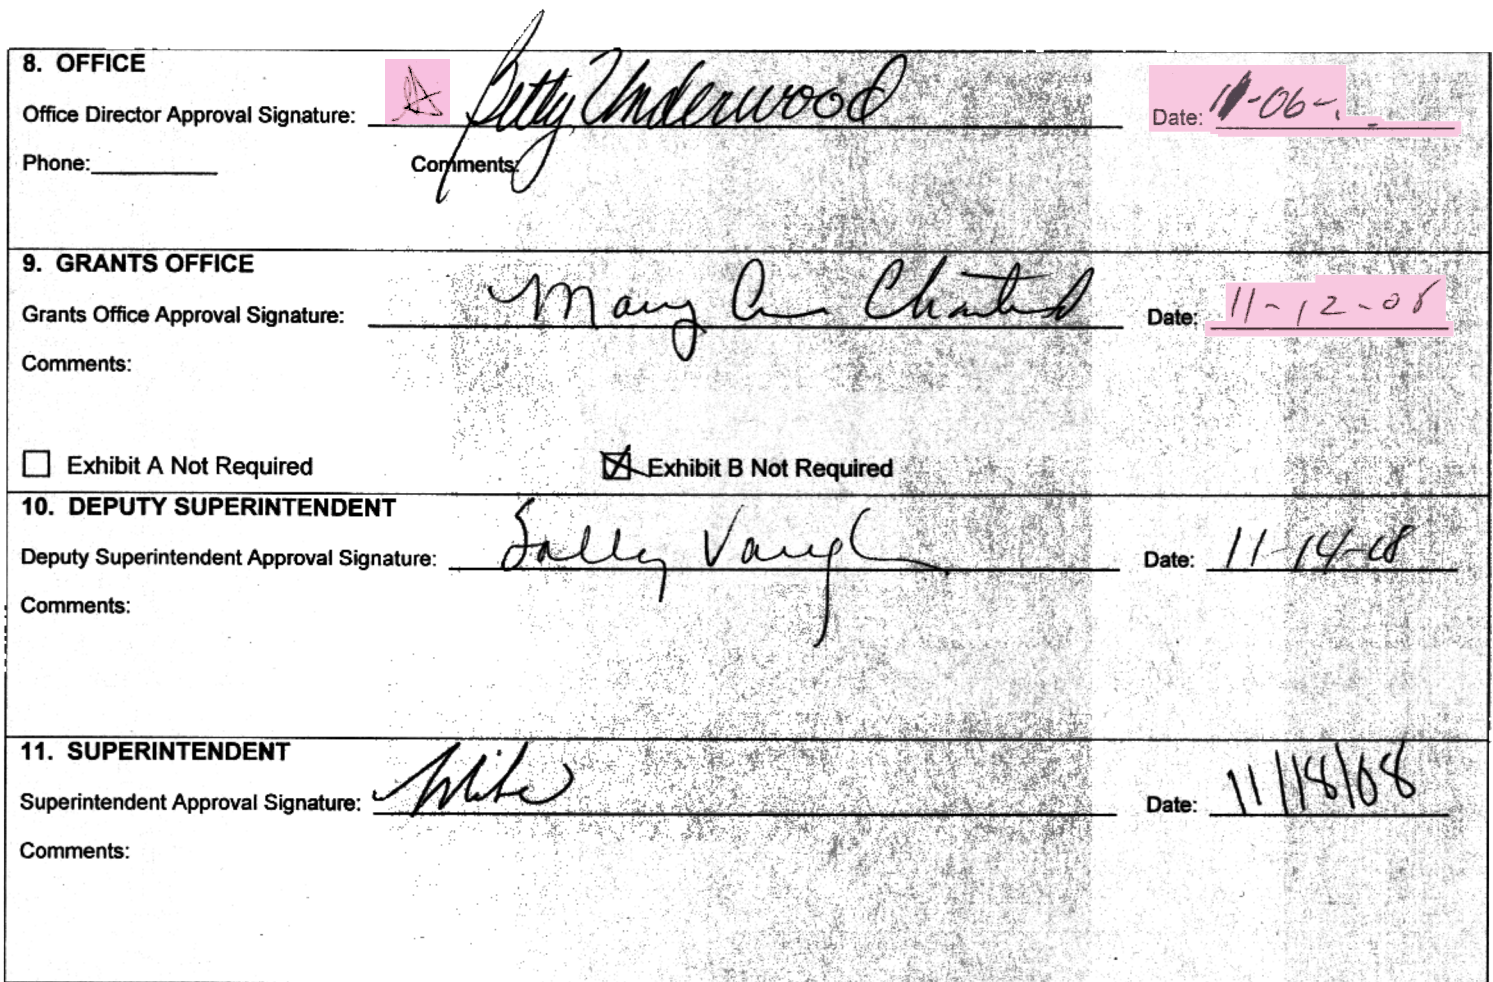 8. OFFICE
Office Director Approval Signature: Betty Underwood Date: 11-06-
Phone: Comments:
9. GRANTS OFFICE
Grants Office Approval Signature: Mary Date: 11-12-08
Comments:
Exhibit A Not Required Exhibit B Not Required
10. DEPUTY SUPERINTENDENT
Deputy Superintendent Approval Signature: Sally Vaugh Date: 11-14-08
Comments:
11. SUPERINTENDENT
Superintendent Approval Signature: Mike Date: 11/18/08
Comments: